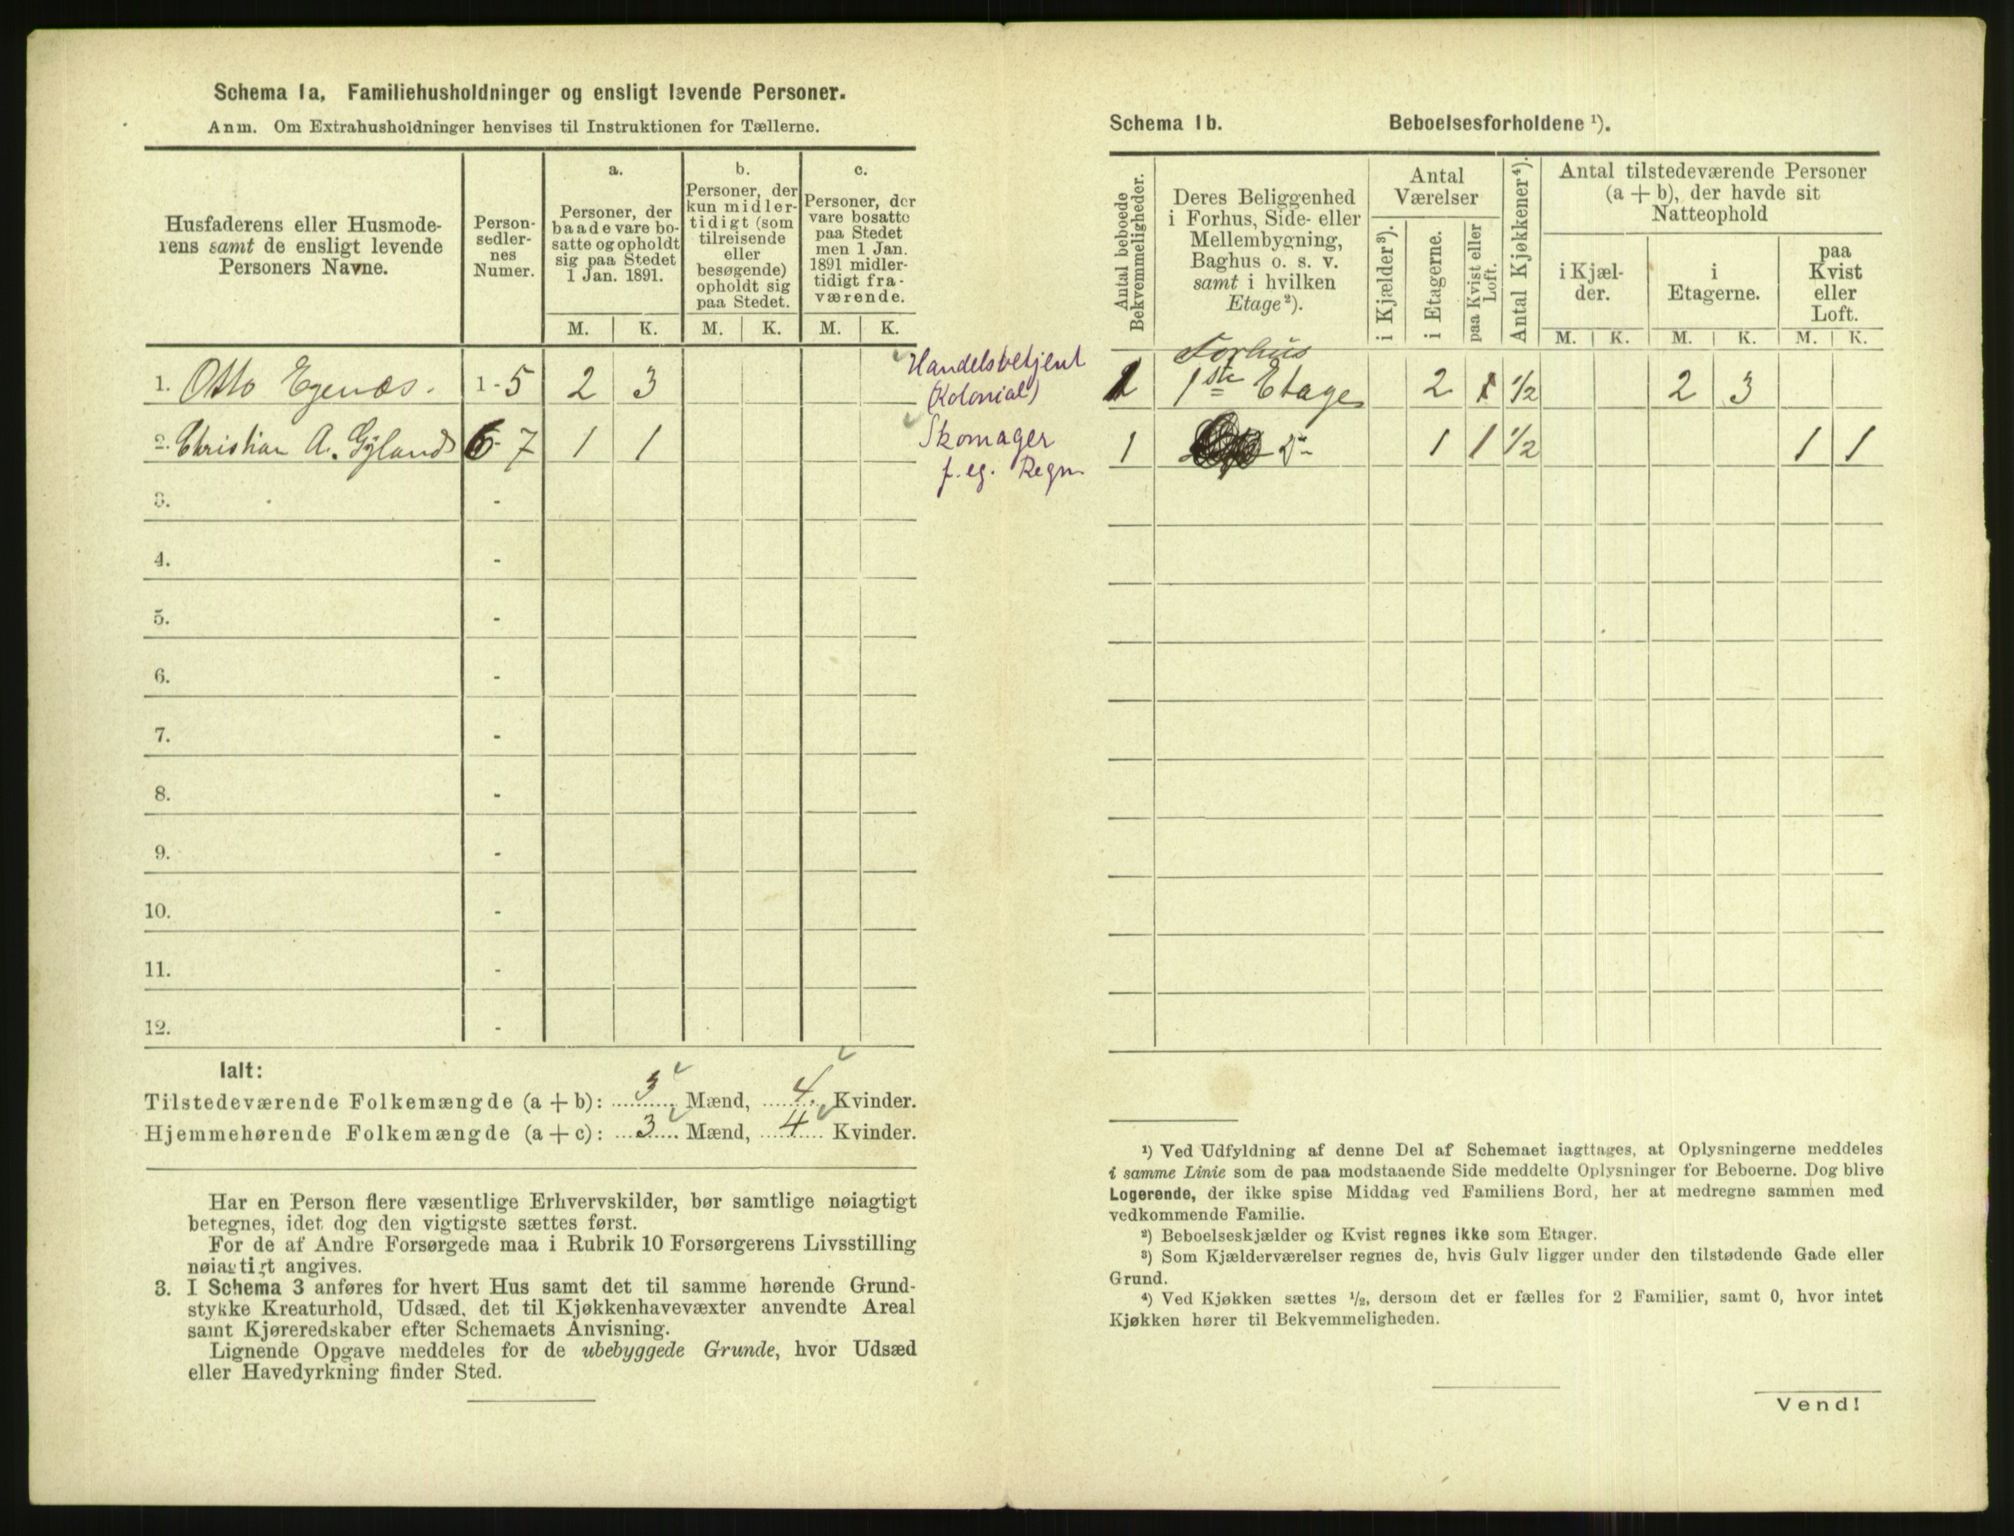 Schema 1a. Familiehusholdninger og ensligt levende Personer.
Anm. Om Extrahusholdninger henvises til Instruktionen for Tællerne.
Husfaderens eller Husmoderens samt de ensligt levende Personers Navne.
Personsedlernes Numer.
a.
Personer, der baade vare bosatte og opholdt sig paa Stedet 1 Jan. 1891.
b.
Personer, der kun midlertidigt (som tilreisende eller besøgende) opholdt sig paa Stedet.
c.
Personer, der vare bosatte paa Stedet men 1 Jan. 1891 midlertidigt fraværende.
M. K. M. K. M. K.
1. Otto Egenæs. 1-5 2 3
Handelsbetjent
(Kolonial)
2. Christian A. Gyland 6-7 1 1
Skomager
f. eg. Regn
3. -
4. -
5. -
6. -
7. -
8. -
9. -
10. -
11. -
12. -
Ialt:
Tilstedeværende Folkemængde (a + b): 3 Mænd, 4 Kvinder.
Hjemmehørende Folkemængde (a + c): 3 Mænd, 4 Kvinder.
Har en Person flere væsentlige Erhvervskilder, bør samtlige nøiagtigt
betegnes, idet dog den vigtigste sættes først.
For de af Andre Forsørgede maa i Rubrik 10 Forsørgerens Livsstilling
nøiagtigt angives.
3. I Schema 3 anføres for hvert Hus samt det til samme hørende Grund-
stykke Kreaturhold, Udsæd, det til Kjøkkenhavevæxter anvendte Areal
samt Kjøreredskaber efter Schemaets Anvisning.
Lignende Opgave meddeles for de ubebyggede Grunde, hvor Udsæd
eller Havedyrkning finder Sted.
Schema 1b. Beboelsesforholdene ¹).
Antal beboede Bekvemmeligheder.
Deres Beliggenhed i Forhus, Side- eller Mellembygning, Baghus o. s. v. samt i hvilken Etage ²).
Antal Værelser
i Kjælder ³).
i Etagerne.
paa Kvist eller Loft.
Antal Kjøkkener ⁴).
Antal tilstedeværende Personer (a + b), der havde sit Natteophold
i Kjælder.
i Etagerne.
paa Kvist eller Loft.
M. K. M. K. M. K.
Forhus
1 1ste Etage 2 1 1/2 2 3
1 Do 1 1 1/2 1 1
¹) Ved Udfyldning af denne Del af Schemaet iagttages, at Oplysningerne meddeles
i samme Linie som de paa modstaaende Side meddelte Oplysninger for Beboerne. Dog blive
Logerende, der ikke spise Middag ved Familiens Bord, her at medregne sammen med
vedkommende Familie.
²) Beboelseskjælder og Kvist regnes ikke som Etager.
³) Som Kjælderværelser regnes de, hvis Gulv ligger under den tilstødende Gade eller
Grund.
⁴) Ved Kjøkken sættes ½, dersom det er fælles for 2 Familier, samt 0, hvor intet
Kjøkken hører til Bekvemmeligheden.
Vend!